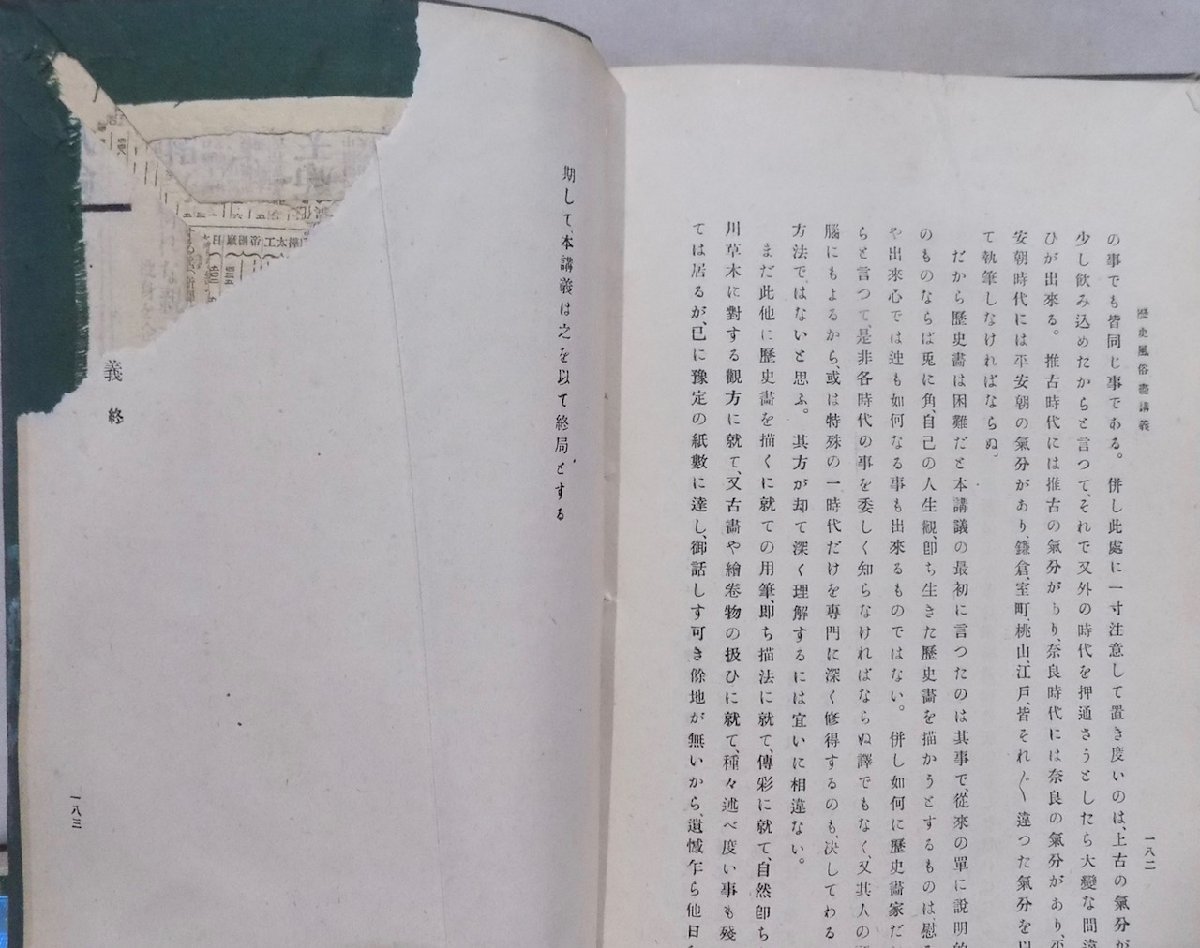 歷史風俗畫講義
一八二
の事でも皆同じ事である。併し此處に一寸注意して置き度いのは、上古の氣分が
少し飮み込めたからと言つて、それで又外の時代を押通さうとしたら大變な間違
ひが出來る。推古時代には推古の氣分がり、奈良時代には奈良の氣分があり、平
安朝時代には平安朝の氣分があり、鎌倉、室町、桃山、江戸、皆それ〲違つた氣分を以
て執筆しなければならぬ。
だから歷史畫は困難だと本講議の最初に言つたのは其事で、從來の單に說明的
のものならば兎に角、自己の人生観、卽ち生きた歷史畫を描かうとするものは、
や出來心では迚も如何なる事も出來るものではない。併し如何に歷史畫家だ
らと言つて、是非各時代の事を委しく知らなければならぬ譯でもなく、又其人の
腦にもよるから、或は特殊の一時代だけを專門に深く修得するのも、決してわる
方法ではないと思ふ。其方が却て深く理解するには宜いに相違ない。
まだ此他に歷史畫を描くに就ての用筆、卽ち描法に就て、傅彩に就て、自然卽ち
川草木に對する観方に就て、又古畫や繪卷物の扱ひに就て、種々述べ度い事も殘
ては居るが、已に豫定の紙數に達し、御話しす可き餘地が無いから、遺憾乍ら他日
期して、本講義は之を以て終局とする
義終
一八三